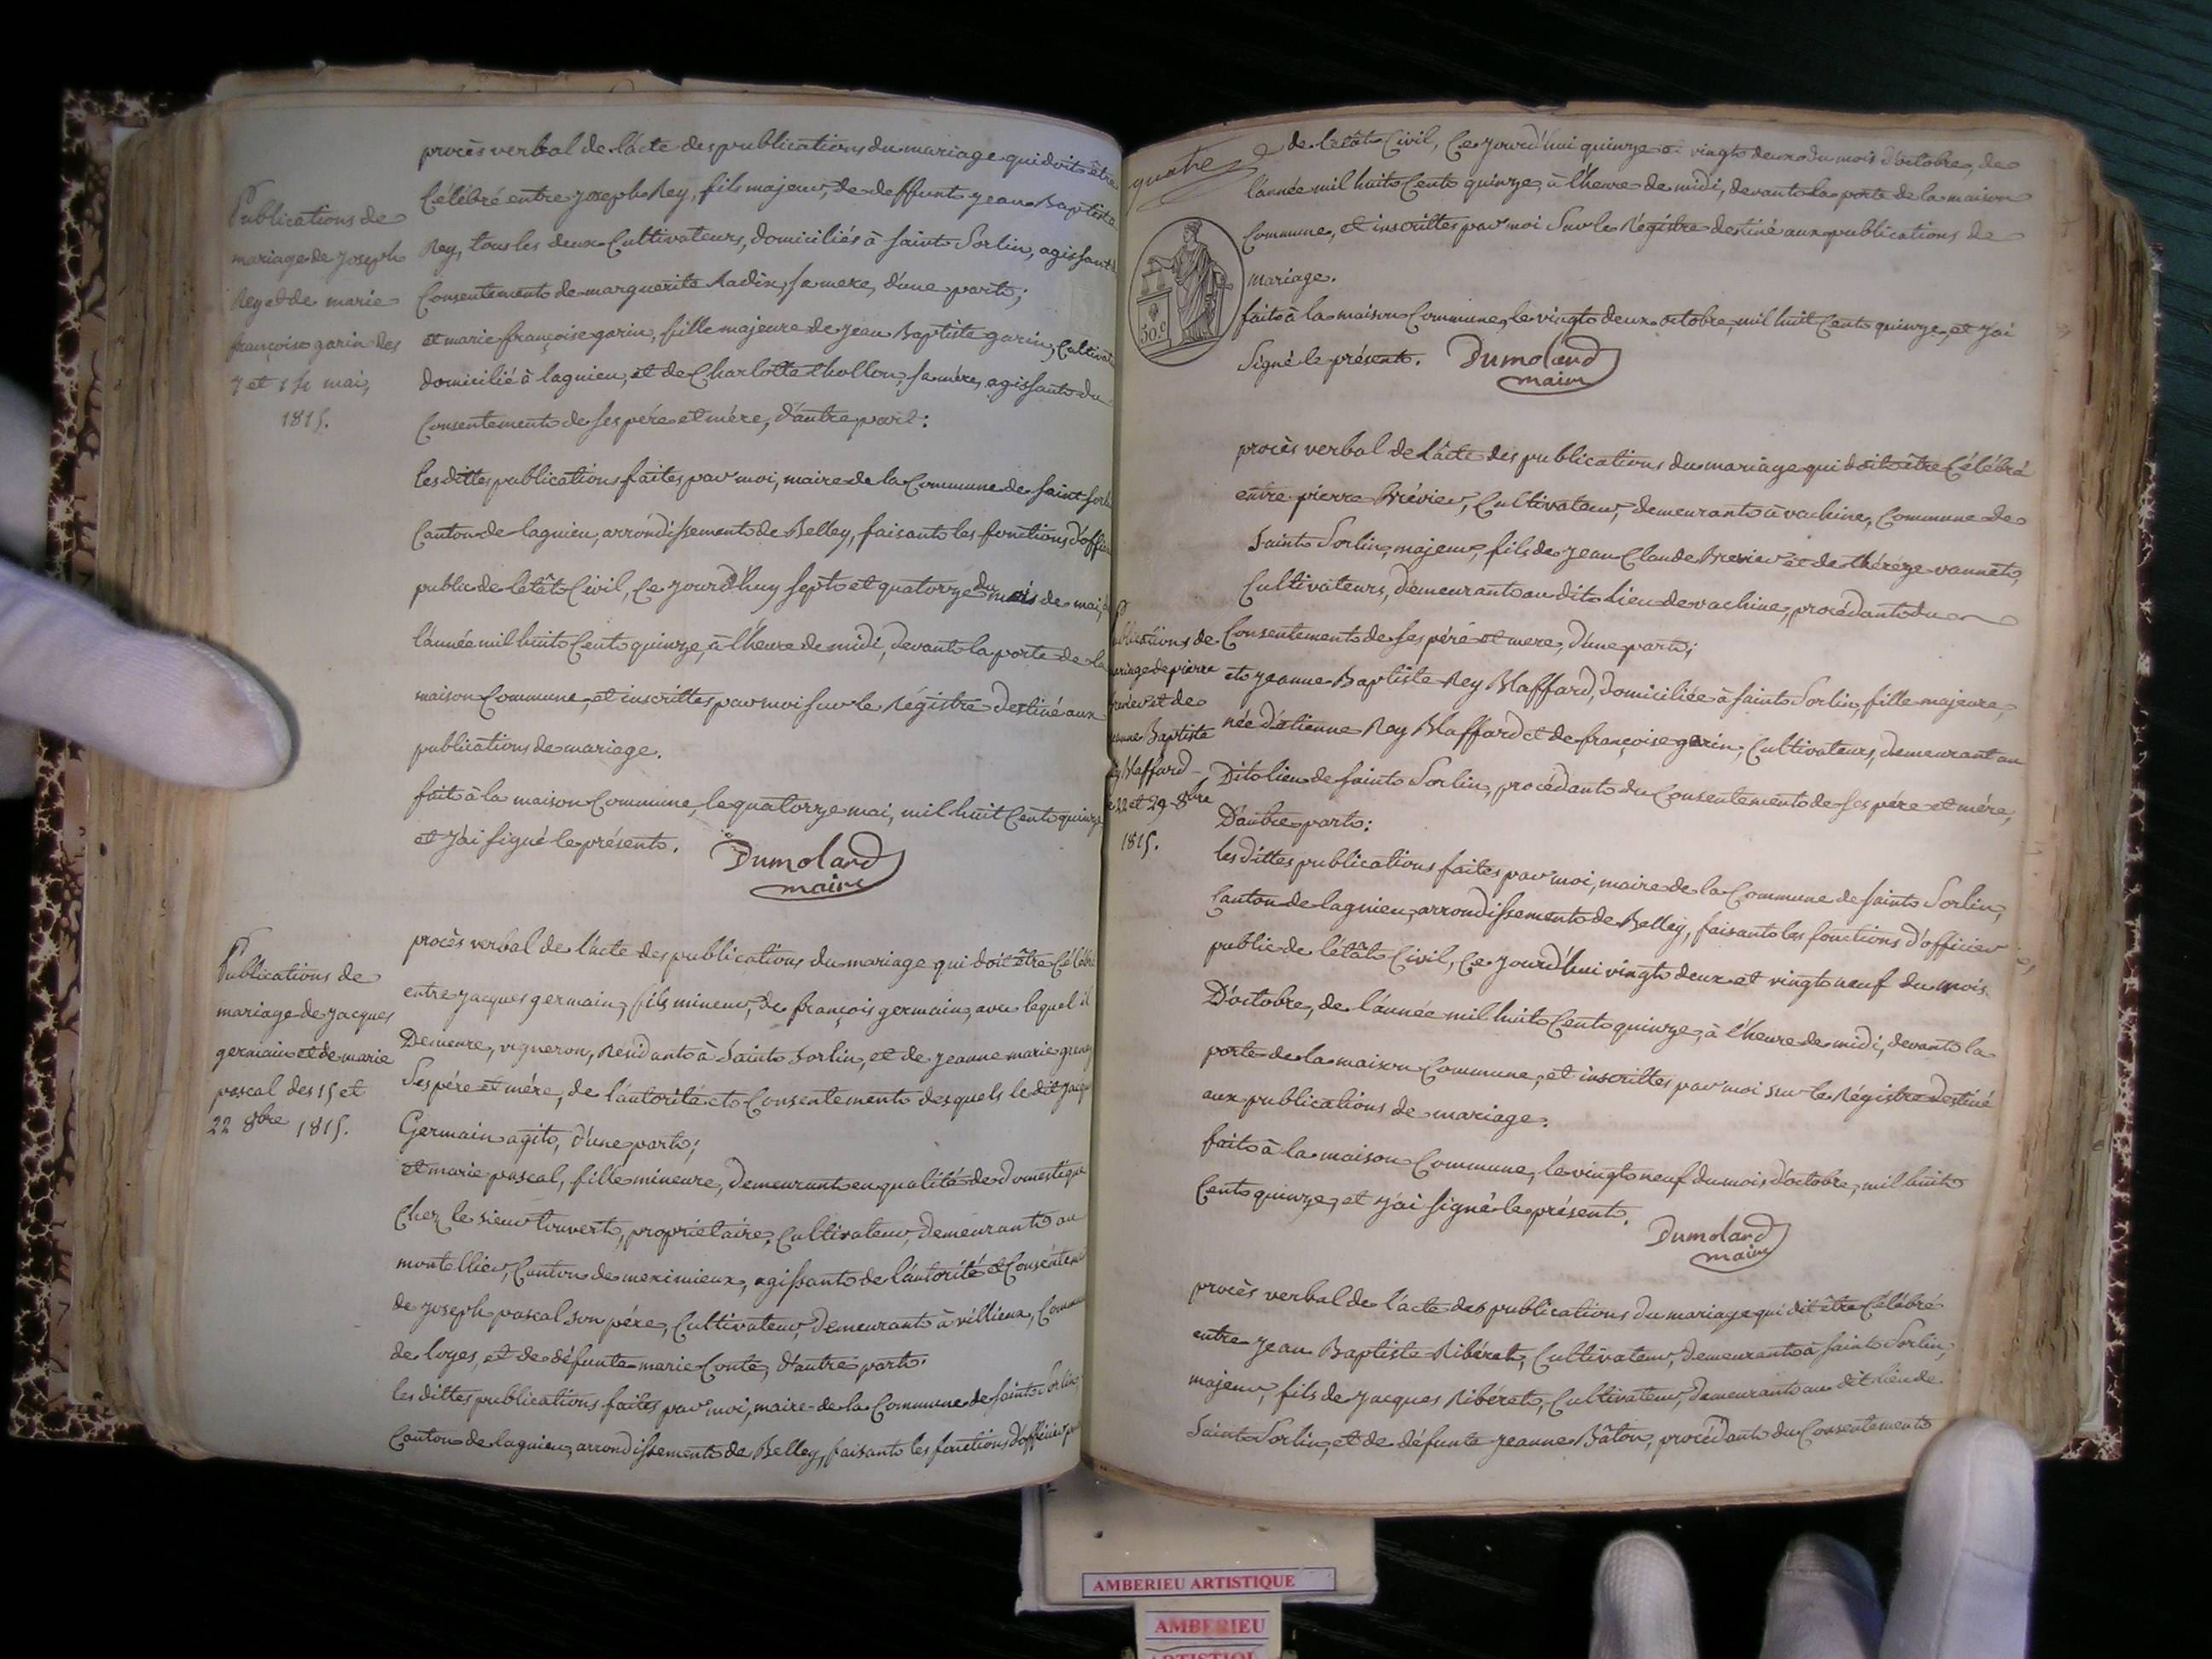 procès verbal de l'acte des publications du mariage qui doit être
Célébré entre joseph Rey, fils majeur, de deffunt jean Baptiste
Rey, tous les deux Cultivateurs, domiciliés à saint Sorlin, agissant
Consentement de marguerite Radix, sa mere, d'une part;
et marie françoise garin, fille majeure de jean Baptiste garin, Cultivat
domicilié à lagnieu, et de Charlotte thollon, sa mére, agissant du
Consentement de ses pére et mére, d'autre part:
les dittes publications faites par moi, maire de la Commune de saint sorli
Canton de lagnieu, arrondissement de Belley, faisant les fonctions d'offi
public de l'etât Civil, Ce jourd'huy sept et quatorze du mois de mai,
l'année mil huit Cent quinze, à l'heure de midi, devant la porte de la
maison Commune, et inscrittes par moi sur le Régistre destiné aux
publications de mariage.
fait à la maison Commune, le quatorze mai, mil huit Cent quinze
et j'ai signé le présent.
Dumolard
maire
Publications de
mariage de joseph
Rey et de marie
françoise garin des
7 et 14 mai,
1815.
procès verbal de l'acte des publications du mariage qui doit être Célébré
entre jacques germain, fils mineur, de françois germain, avec lequel il
Demeure, vigneron, Résidant à Saint Sorlin, et de jeanne marie
Ses pére et mére, de l'autorité et Consentement desquels le dit jacqu
Germain agit, d'une part;
et marie pascal, fille mineure, Demeurant en qualité de domestique
Chez le sieur touvert, propriétaire, Cultivateur, Demeurant au
montellier, Canton de meximieux, agissant de l'autorité et Consentem
de joseph pascal son pére, Cultivateur, Demeurant à villieux, Commu
de loyes, et de défunte marie Conte, d'autre part.
les dittes publications faites par moi, maire de la Commune de saint Sorlin
Canton de lagnieu, arrondissement de Belley, faisant les fonctions d'officier pu
Publications de
mariage de jacques
germain et de marie
pascal des 15 et
22 8bre 1815.
quatre
de l'etât Civil, Ce jourd'hui quinze et vingt deux du mois d'octobre, de
l'année mil huit Cent quinze, à l'heure de midi, devant la porte de la maison
Commune, et inscrittes par moi Sur le Régistre destiné aux publications de
mariage.
fait à la maison Commune, le vingt deux octobre, mil huit Cent quinze, et j'ai
Signé le présent.
Dumolard
maire
50.c
procès verbal de l'acte des publications du mariage qui doit être Célébré
entre pierre Brévier, Cultivateur, demeurant à vachine, Commune de
Saint Sorlin, majeur, fils de jean Claude Brevier et de thérèze vannet,
Cultivateurs, demeurant au dit Lieu de vachine, procédant du
Consentement de ses pére et mere, d'une part;
et jeanne Baptiste Rey Blaffard, domiciliée à saint Sorlin, fille majeure,
née d'étienne Rey Blaffard et de françoise garin, Cultivateurs, demeurant au
Dit lieu de saint Sorlin, procédant du Consentement de ses pére et mére,
D'autre part:
les dittes publications faites par moi, maire de la Commune de saint Sorlin,
Canton de lagnieu, arrondissement de Belley, faisant les fonctions d'officier
public de l'étât Civil, Ce jourd'hui vingt deux et vingt neuf du mois
D'octobre, de l'année mil huit Cent quinze, à l'heure de midi, devant la
porte de la maison Commune, et inscrittes par moi Sur le Régistre Destiné
aux publications de mariage.
fait à la maison Commune, le vingt neuf du mois d'octobre, mil huit
Cent quinze, et j'ai signé le présent.
Dumolard
maire
ublications de
ariage de pierre
brévier et de
eanne Baptiste
Rey Blaffard
22 et 29 8bre
1815.
procès verbal de l'acte des publications du mariage qui dit être Célébré
entre jean Baptiste Ribéret, Cultivateur, demeurant à saint Sorlin,
majeur, fils de jacques Ribéret, Cultivateur, Demeurant au dit lieu de
Saint Sorlin, et de défunte jeanne Bâton, procédant du Consentement
AMBERIEU ARTISTIQUE
AMBERIEU
ARTISTIQUE